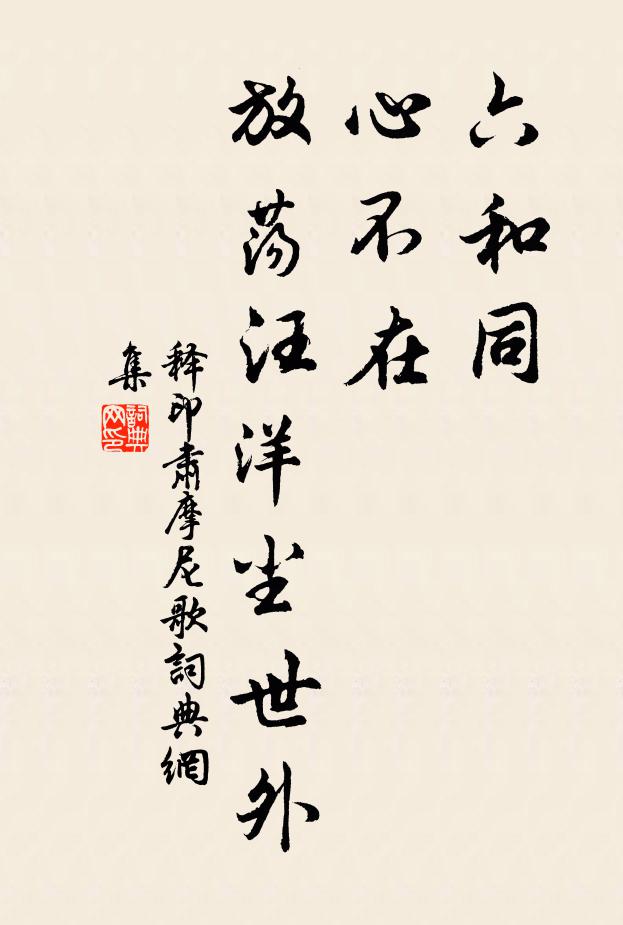 六和同
心不在
放荡汪洋尘世外
释印肃摩尼歌詞典網
集
詞典
网印